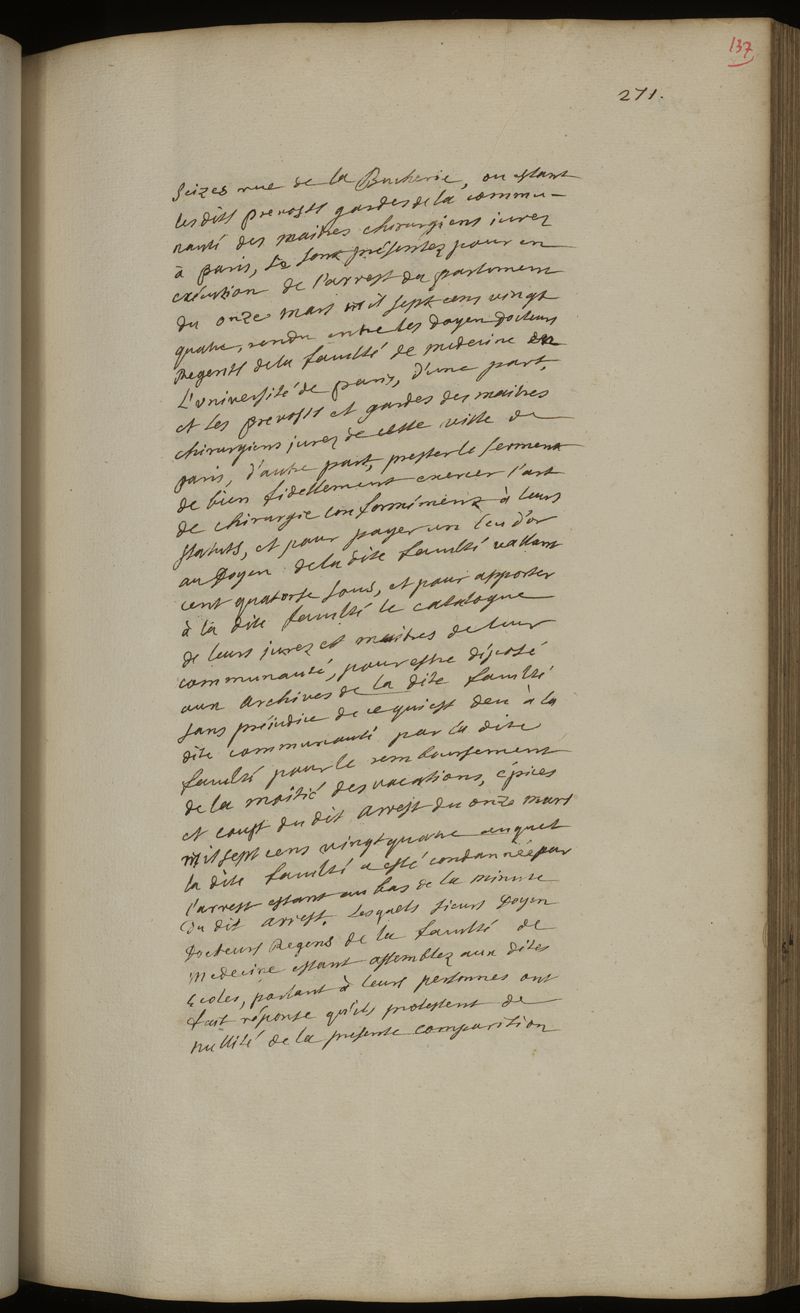 137
271.
Seizes rue de la Bucherie, ou estant
lesdits prevosts gardes de la commu-
nauté des maitres chirurgiens jurez
à paris, se sont présentez pour en
exécution de l'arrest du parlement
du onze mars mil sept cens vingt
quatre, rendu entre les doyen docteurs
Regents de la faculté de medecine en
L'université de paris, d'une part,
et les prevosts et gardes des maitres
chirurgiens jurez de cette ville de
paris, d'autre part, prester le serment
de bien fidellement exercer l'art
de chirurgie conformément à leurs
statuts, et pour payer un écu d'or
au Doyen de la dite faculté vallant
cent quatorse sous, et pour apporter
à la dite faculté le catalogue
de leurs jurez et maitres de leur
communauté, pour estre déposé
aux archives de la dite faculté
sans préiudice de ce qui est deu à la
dite communauté par la dite
faculté pour le remboursement
de la moitié des vacations, épices
et coust du dit arrest du onze mars
mil sept cens vingt quatre auquel
la dite faculté a esté condannée par
l'arrest estant au bas de la minute
du dit arrest. Lesquels sieurs Doyen
Docteurs Regens de la faculté de
Medecine estant assemblez aux dites
Ecoles, parlant à leurs personnes ont
fait réponse qu'ils protestent de
nullité de la presente comparition